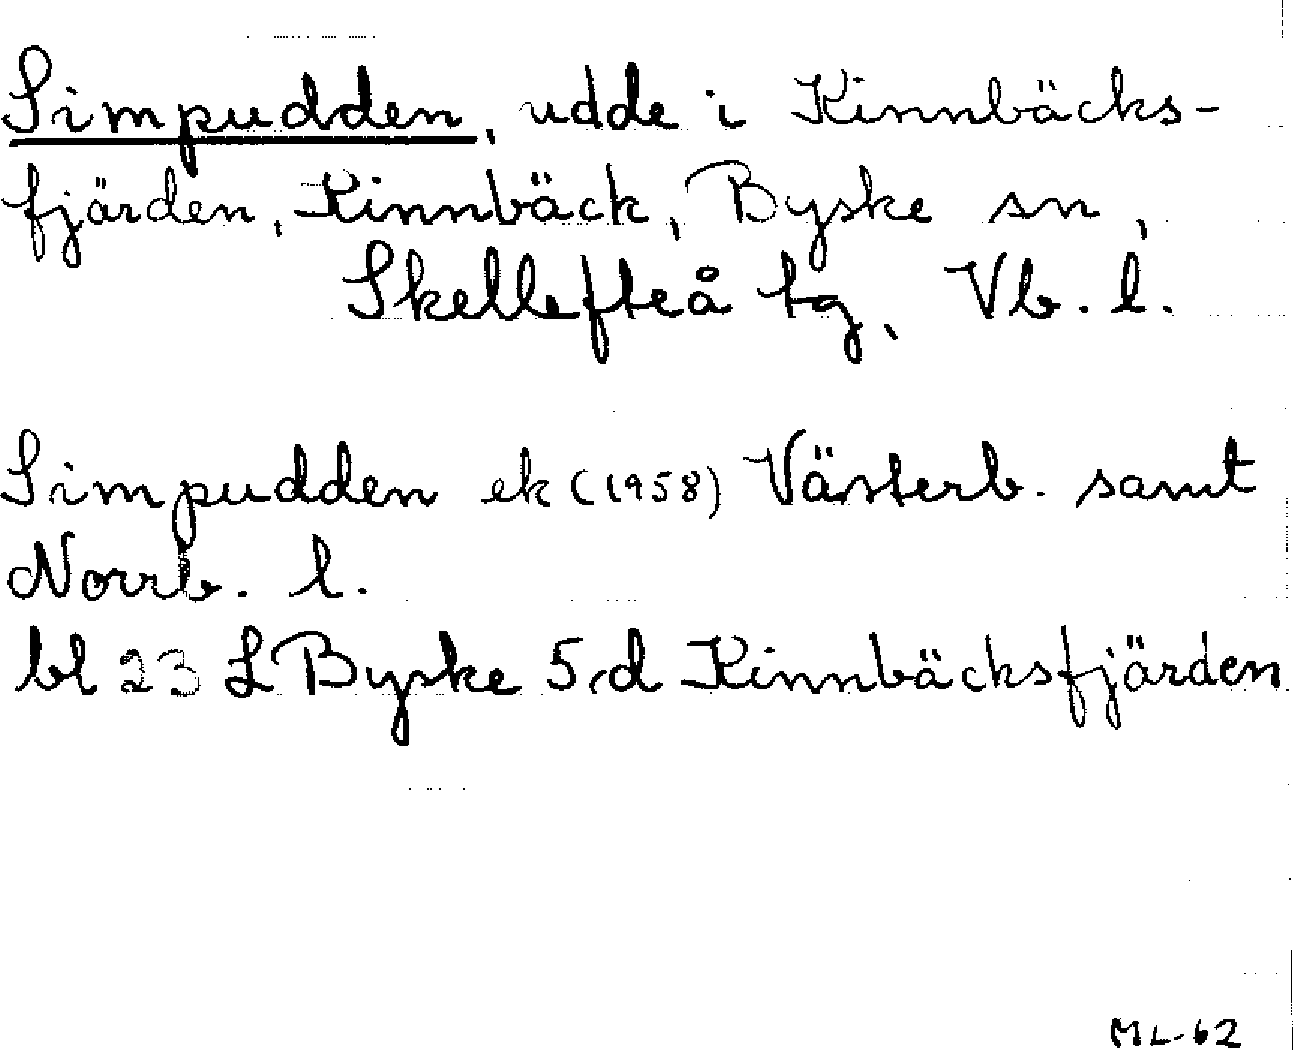 Simpudden, udde i Kinnbäcks-
fjärden, Kinnbäck, Byske sn,
Skellefteå tg, Vb. l.
Simpudden ek (1958) Västerb. samt
Norrb. l.
bl 23 L Byske 5 d Kinnbäcksfjärden
ML-62